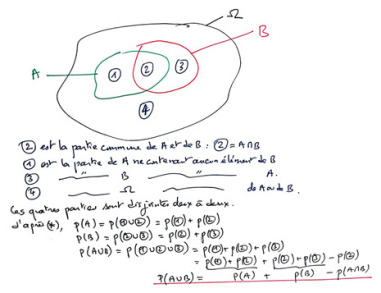 Ω
B
A
① ② ③
④
② est la partie commune de A et de B : ② = A∩B
① est la partie de A ne contenant aucun élément de B
③ —〃— B —〃— A.
④ —〃— Ω —〃— de A ou de B.
Ces quatre parties sont disjointes deux à deux.
d'après (*), p(A) = p(①∪②) = p(①) + p(②)
p(B) = p(②∪③) = p(②) + p(③)
p(A∪B) = p(①∪②∪③) = p(①) + p(②) + p(③)
= p(①) + p(②) + p(②) + p(③) - p(②)
P(A∪B) = p(A) + p(B) - p(A∩B)